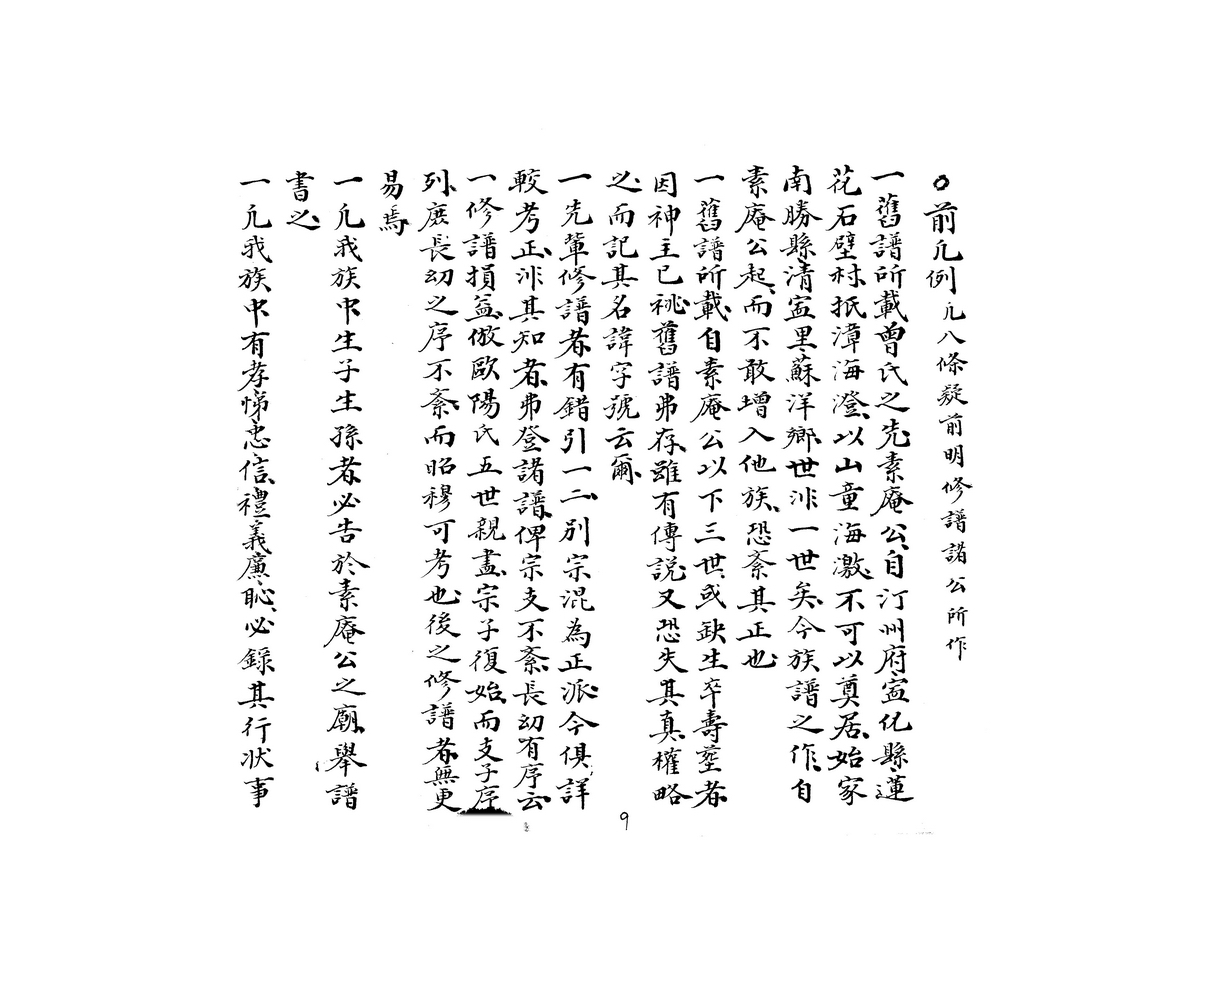 ○前凡例 凡八條疑前明修譜諸公所作
一舊譜所載曾氏之先素庵公自汀州府寍化縣蓮
花石壁村抵漳海澄以山童海激不可以奠居始家
南勝縣清寍里蘇洋鄉世泋一世矣今族譜之作自
素庵公起而不敢增入他族恐紊其正也
一舊譜所載自素庵公以下三世或缺生卒壽塋者
因神主已祧舊譜弗存雖有傳説又恐失其真權略
之而記其名諱字號云爾
一先輩修譜者有錯引一二別宗混為正派今俱詳
較考正泋其知者弗登諸譜俾宗支不紊長幼有序云
一修譜損益倣歐陽氏五世親盡宗子復始而支子序
列庶長幼之序不紊而昭穆可考也後之修譜者無更
易焉
一凡我族中生子生孫者必告於素庵公之廟舉譜
書之
一凡我族中有孝悌忠信禮義廉恥必錄其行狀事
9